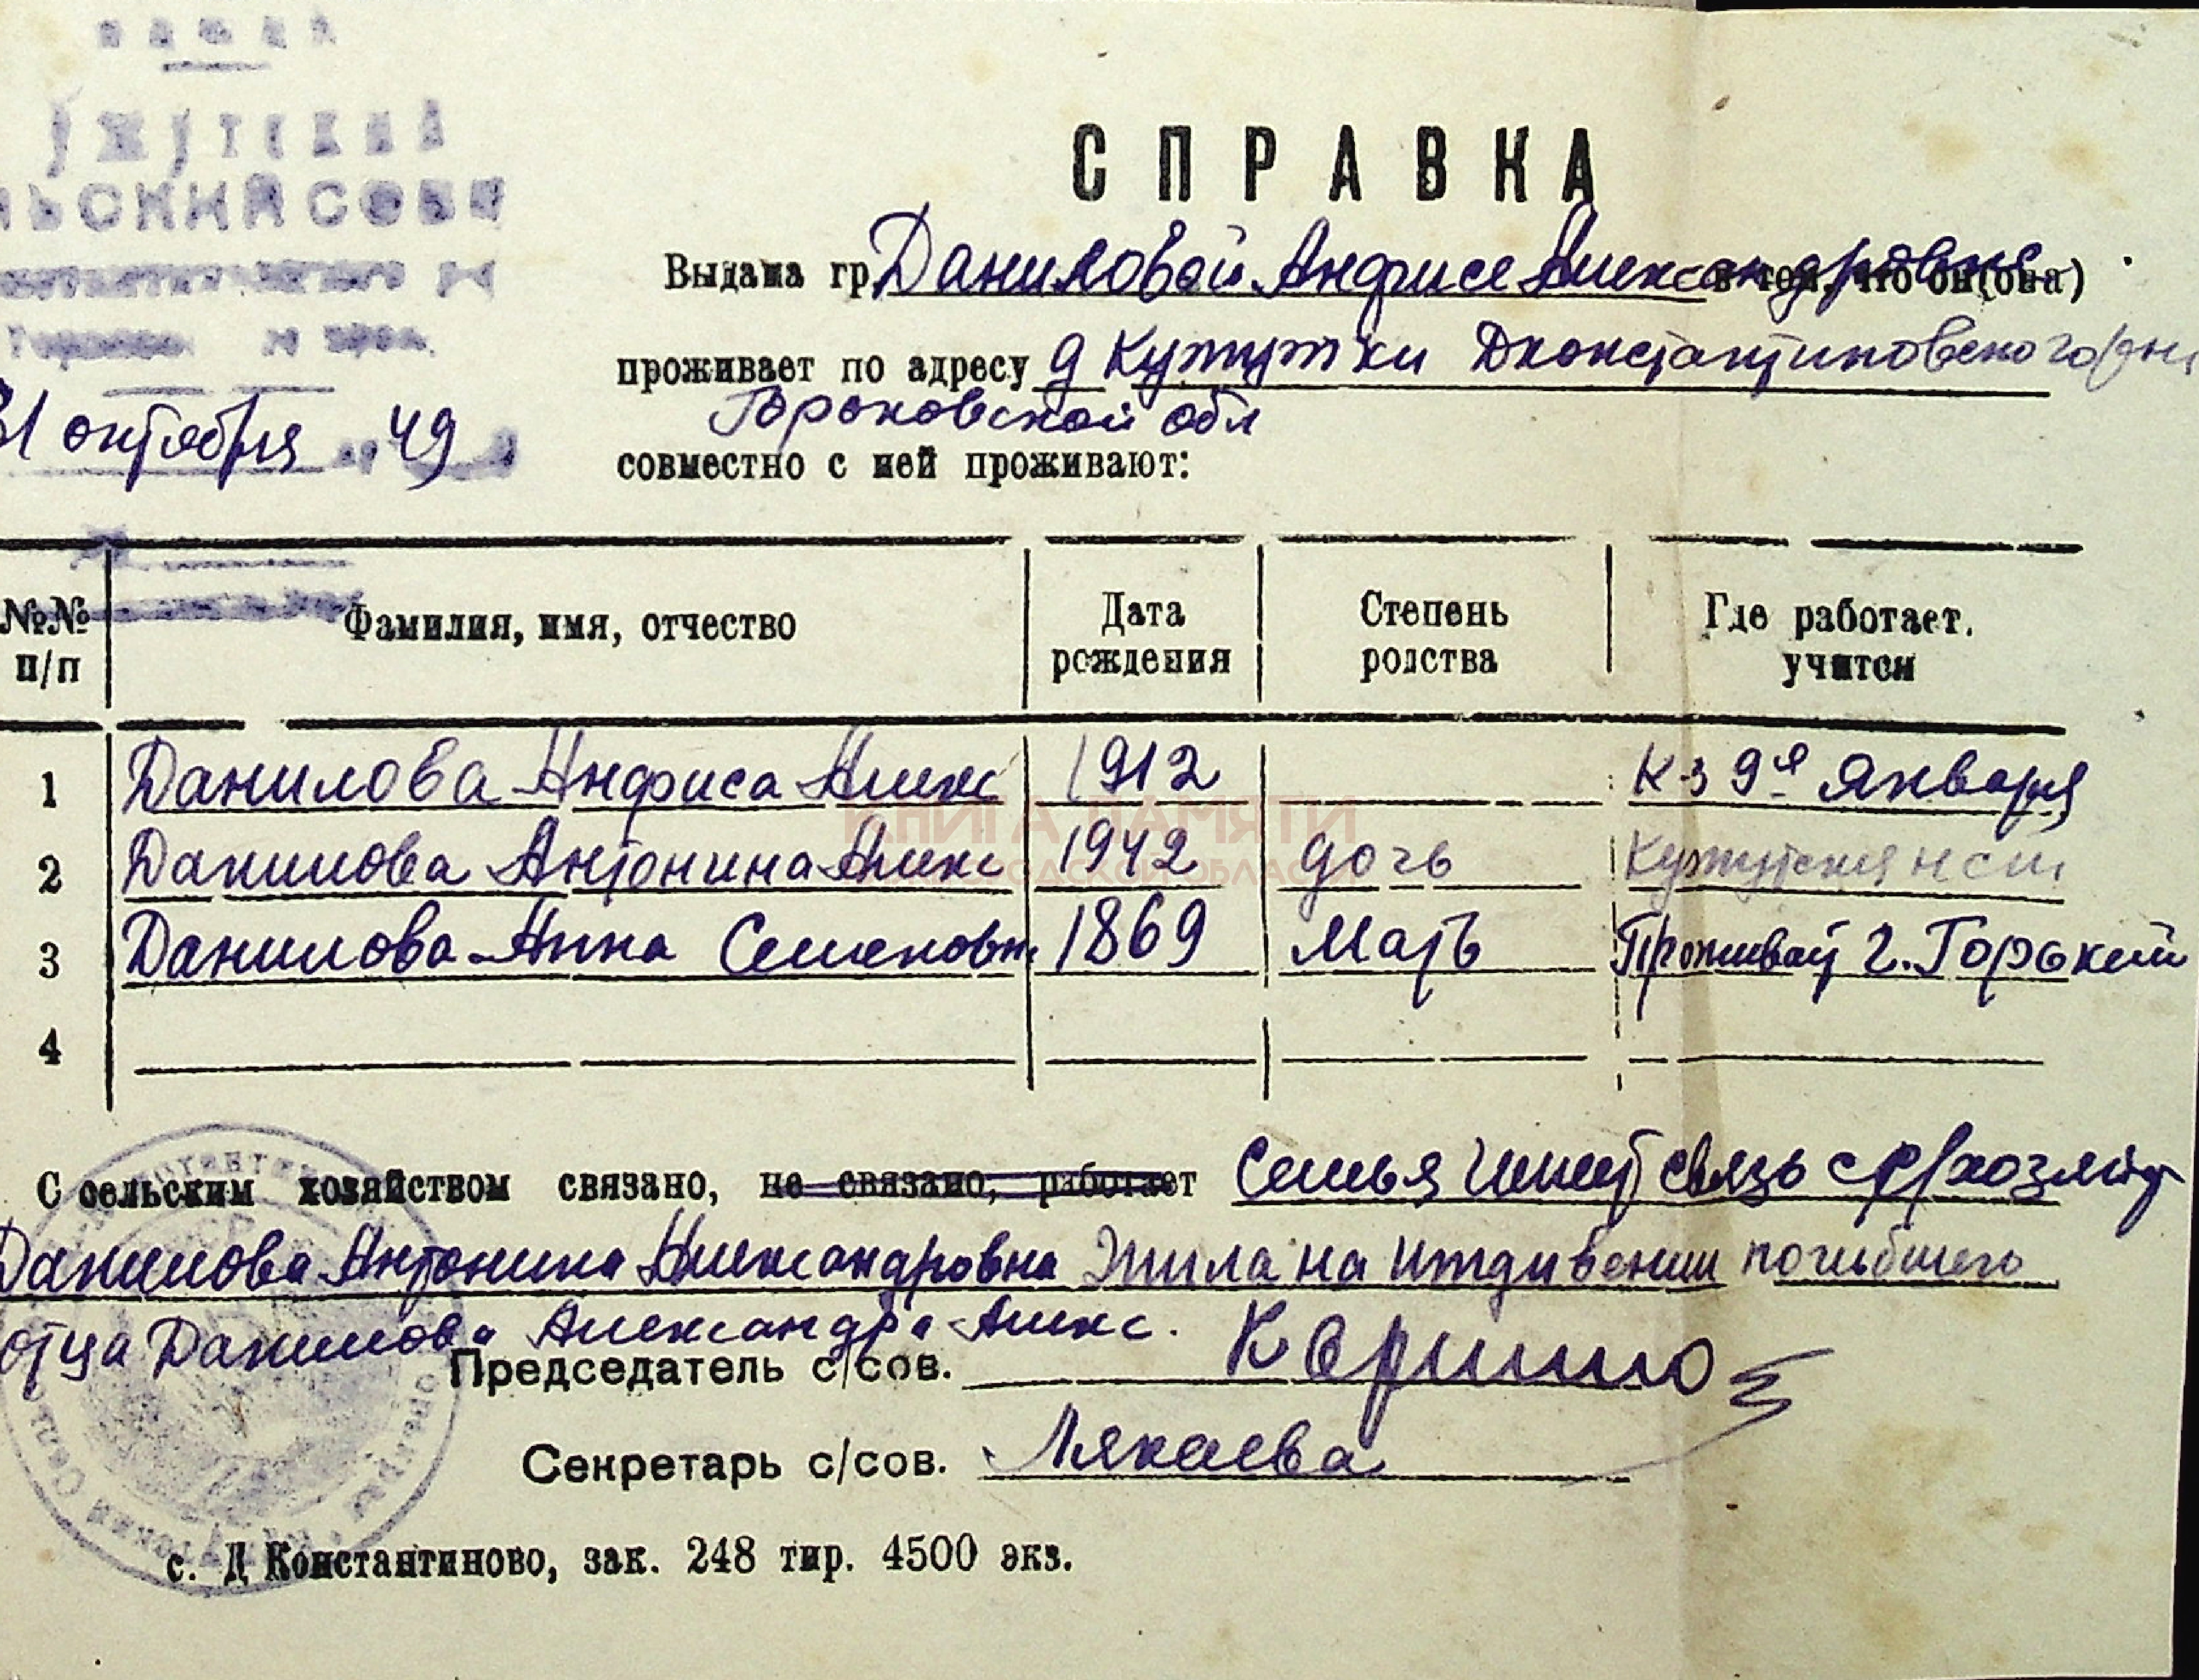 УЖУТСКИЙ
ЛЬСКИЙ СОВЕТ
31 октября 49
СПРАВКА
Выдана гр. Даниловой Анфисе Александровне в том, что он(она)
проживает по адресу д Кужутки Дконстантиновского р-на
Горьковской обл
совместно с ней проживают:
№№ п/п Фамилия, имя, отчество Дата рождения Степень родства Где работает, учится
1 Данилова Анфиса Алекс 1912 К-з 9е Января
2 Данилова Антонина Алекс 1942 дочь Кужутская нсш
3 Данилова Анна Семеновн. 1869 Мать Проживает г. Горький
4
КНИГА ПАМЯТИ
НИЖЕГОРОДСКОЙ ОБЛАСТИ
С сельским хозяйством связано, не связано, работает Семья имеет связь с
Данилова Антонина Александровна Жила на иждивении погибшего
отца Данилова Александра Алекс.
Председатель с/сов.
Секретарь с/сов.
с. Д Константиново, зак. 248 тир. 4500 экз.